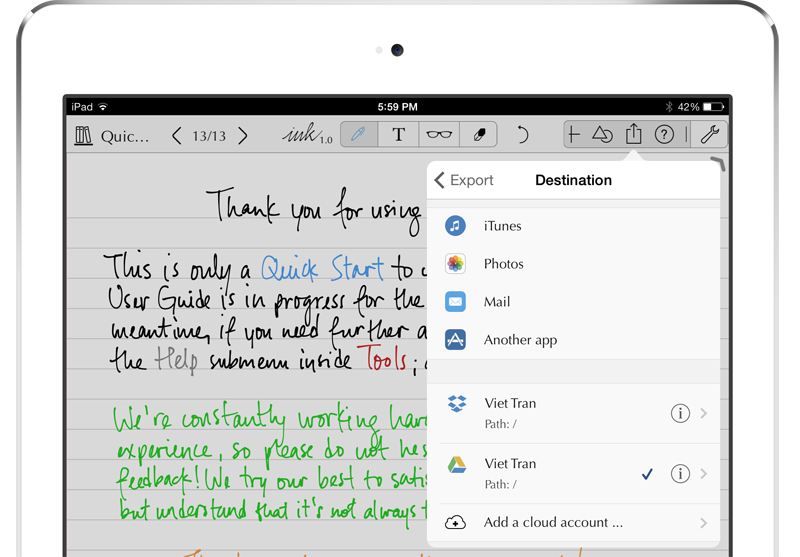 iPad
5:59 PM
42%
Quic...
13/13
ink 1.0
T
Thank you for using
This is only a Quick Start to
User Guide is in progress for the
meantime, if you need further
the Help submenu inside Tools;
We're constantly working hard
experience, so please do not hes
feedback! We try our best to satis
but understand that it's not always
Export
Destination
iTunes
Photos
Mail
Another app
Viet Tran
Path: /
Viet Tran
Path: /
Add a cloud account ...